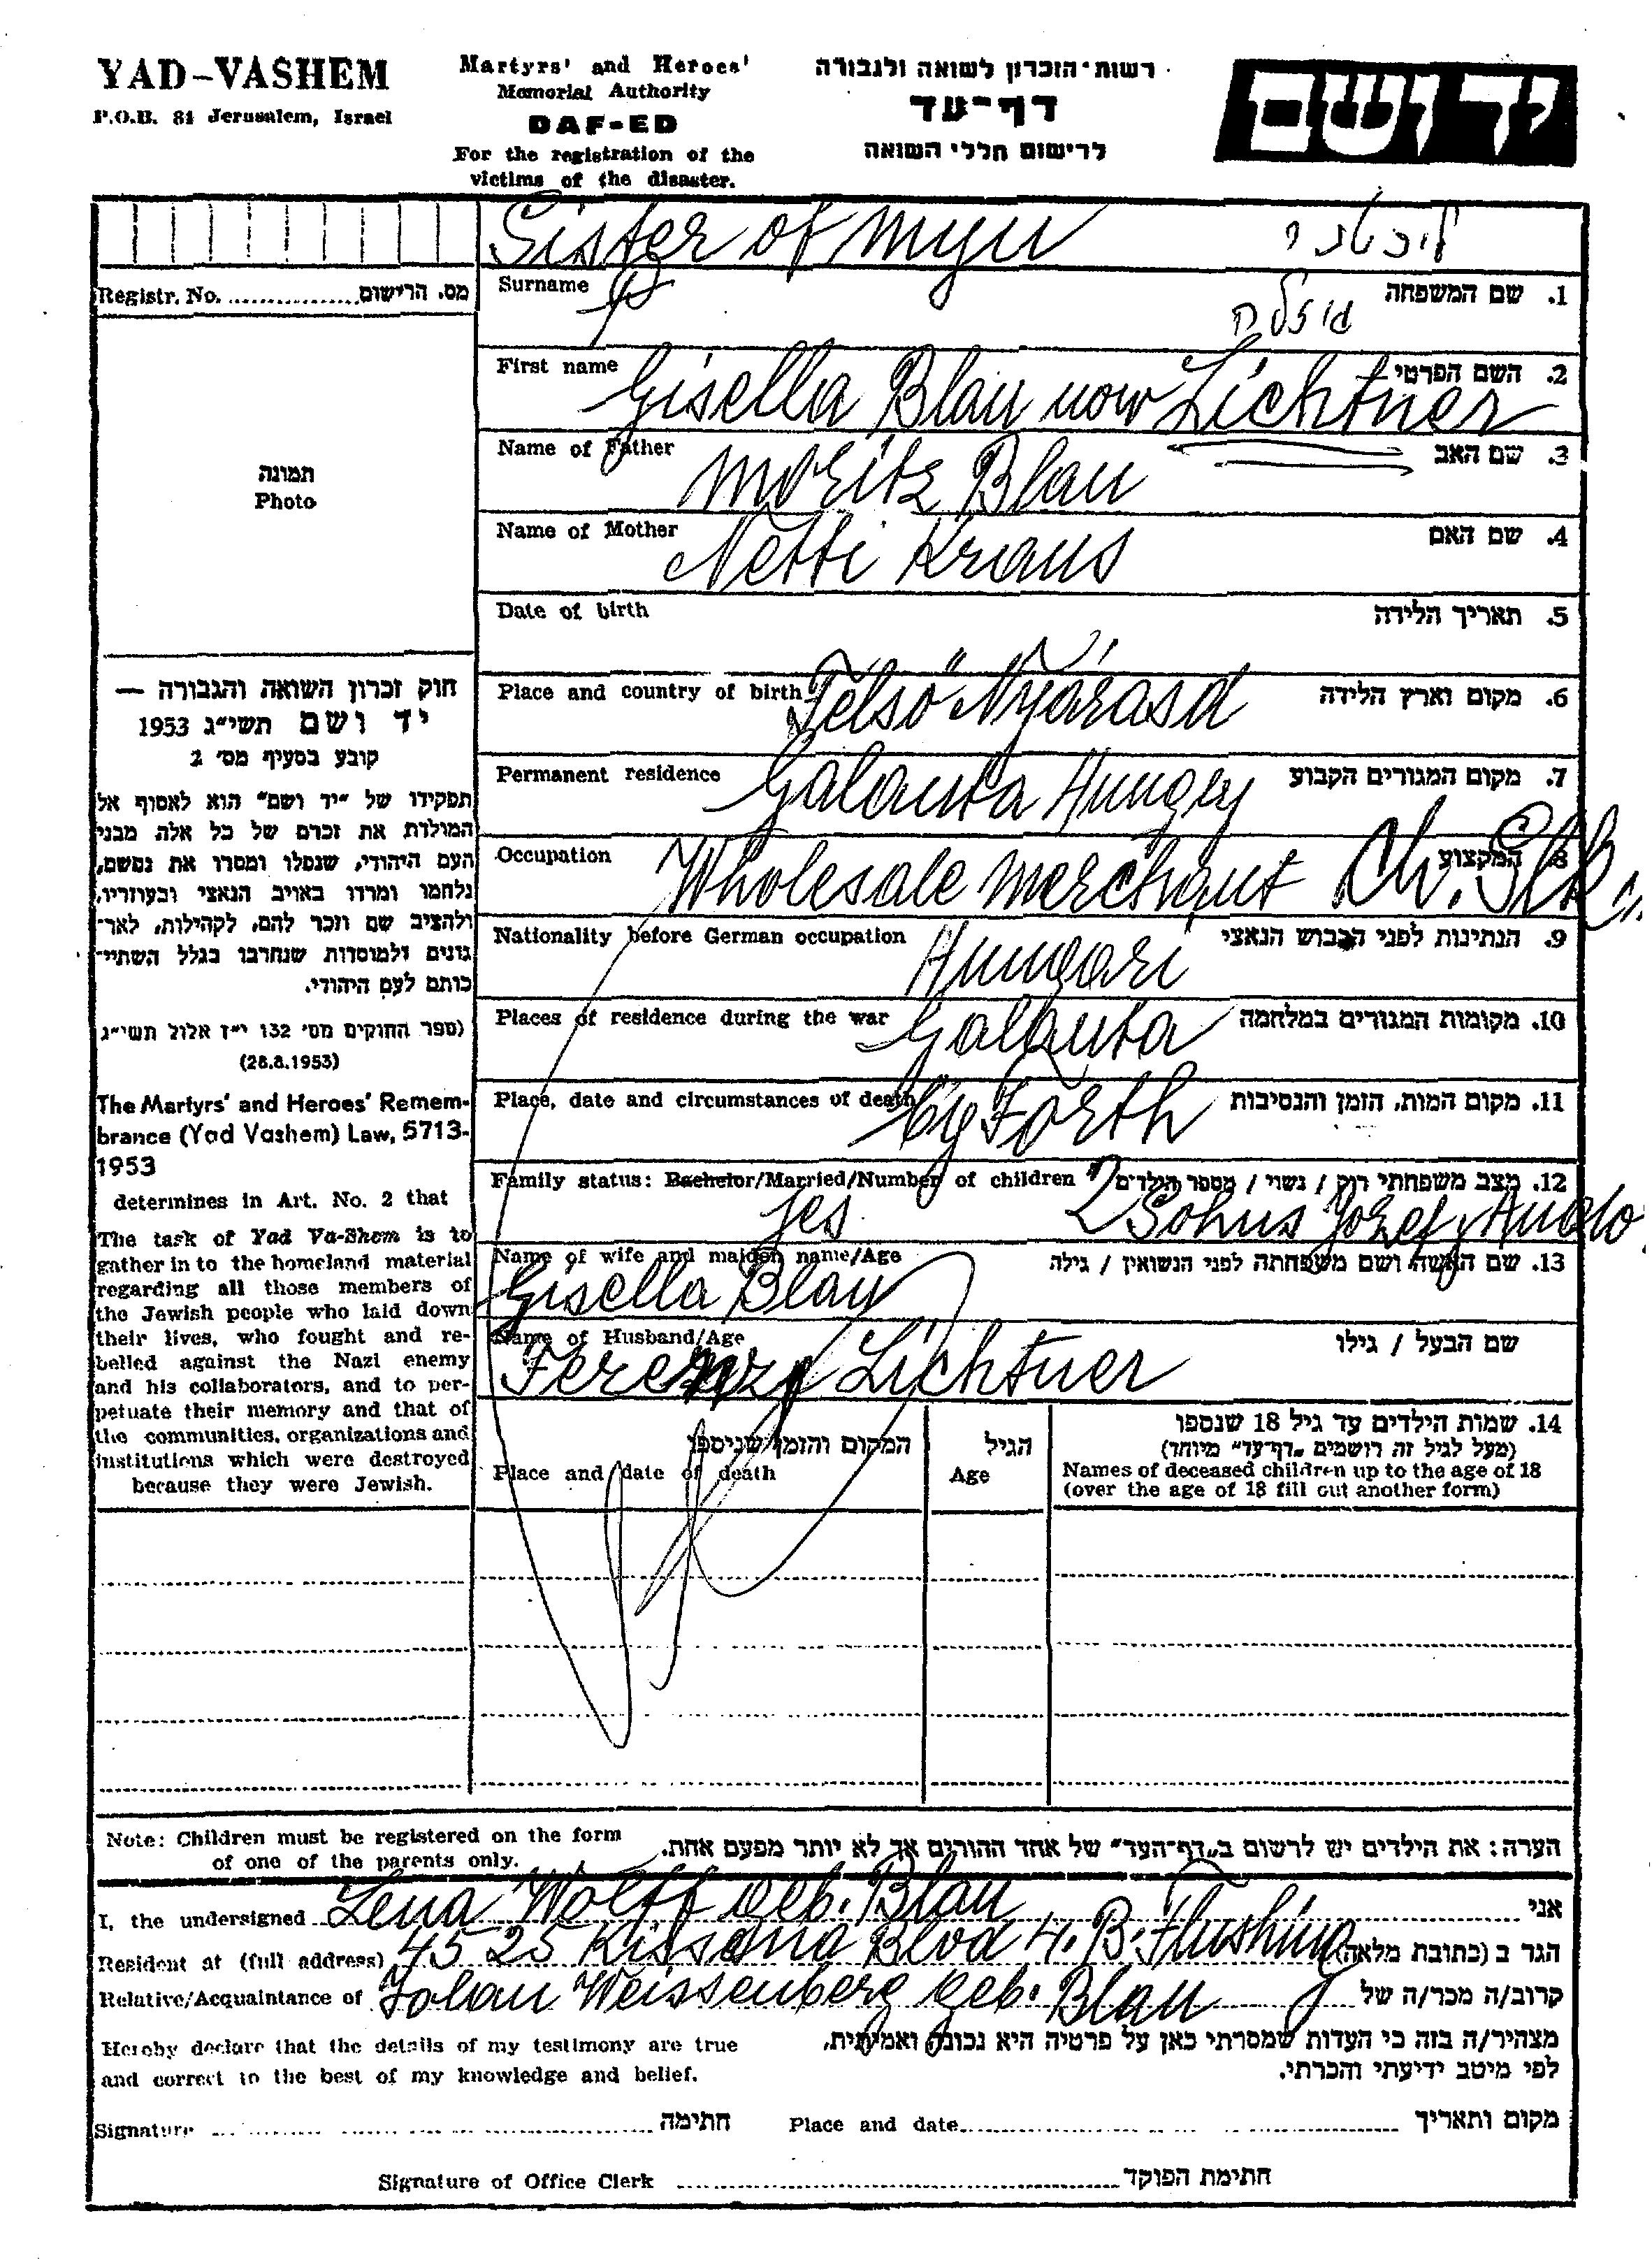 YAD-VASHEM
P.O.B. 84 Jerusalem, Israel
Martyrs' and Heroes'
Memorial Authority
DAF-ED
For the registration of the
victims of the disaster.
רשות-הזכרון לשואה ולגבורה
דף-עד
לרישום חללי השואה
יד ושם
Sister of
Registr. No. מס. הרישום
Surname
1. שם המשפחה
גיזלה
First name
2. השם הפרטי
Gisella Blau now Lichtner
Name of Father
3. שם האב
Moritz Blau
Name of Mother
4. שם האם
Netti Kraus
Date of birth
5. תאריך הלידה
Place and country of birth
6. מקום וארץ הלידה
Felső Nyárasd
Permanent residence
7. מקום המגורים הקבוע
Galanta
Occupation
8. המקצוע
Wholesale Merchant
Nationality before German occupation
9. הנתינות לפני הכבוש הנאצי
Hungari
Places of residence during the war
10. מקומות המגורים במלחמה
Galanta
Place, date and circumstances of death
11. מקום המות, הזמן והנסיבות
Family status: Bachelor/Married/Number of children
12. מצב משפחתי רוק / נשוי / מספר הילדים
yes 2 Sohns Jozef
Name of wife and maiden name/Age
13. שם האשה ושם משפחתה לפני הנשואין / גילה
Gisella Blau
Name of Husband/Age
שם הבעל / גילו
Lichtner
תמונה
Photo
חוק זכרון השואה והגבורה —
יד ושם תשי"ג 1953
קובע בסעיף מס' 2
תפקידו של "יד ושם" הוא לאסוף אל
המולדת את זכרם של כל אלה מבני
העם היהודי, שנפלו ומסרו את נפשם,
נלחמו ומרדו באויב הנאצי ובעוזריו,
ולהציב שם וזכר להם, לקהילות, לאר-
גונים ולמוסדות שנחרבו בגלל השתיי-
כותם לעם היהודי.
(ספר החוקים מס' 132 י"ז אלול תשי"ג
(28.8.1953)
The Martyrs' and Heroes' Remem-
brance (Yad Vashem) Law, 5713-
1953
determines in Art. No. 2 that
The task of Yad Va-Shem is to
gather in to the homeland material
regarding all those members of
the Jewish people who laid down
their lives, who fought and re-
belled against the Nazi enemy
and his collaborators, and to per-
petuate their memory and that of
the communities, organizations and
institutions which were destroyed
because they were Jewish.
המקום והזמן שניספו
Place and date of death
הגיל
Age
14. שמות הילדים עד גיל 18 שנספו
(מעל לגיל זה רושמים "דף-עד" מיוחד)
Names of deceased children up to the age of 18
(over the age of 18 fill out another form)
Note: Children must be registered on the form
of one of the parents only.
הערה: את הילדים יש לרשום ב"דף-העד" של אחד ההורים אך לא יותר מפעם אחת.
I, the undersigned Lena Wolff geb. Blau אני
Resident at (full address) 45 25 Kissena Blvd 4. B. Flushing הגר ב (כתובת מלאה)
Relative/Acquaintance of Jolan Weissenberg geb. Blau קרוב/ה מכר/ה של
Hereby declare that the details of my testimony are true
and correct to the best of my knowledge and belief.
מצהיר/ה בזה כי העדות שמסרתי כאן על פרטיה היא נכונה ואמיתית,
לפי מיטב ידיעתי והכרתי.
Signature חתימה Place and date מקום ותאריך
Signature of Office Clerk חתימת הפוקד